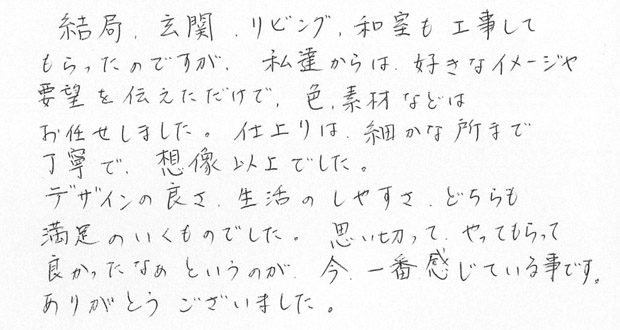 結局、玄関、リビング、和室も工事して
もらったのですが、私達からは、好きなイメージや
要望を伝えただけで、色、素材などは
お任せしました。仕上りは、細かな所まで
丁寧で、想像以上でした。
デザインの良さ、生活のしやすさ、どちらも
満足のいくものでした。思い切って、やってもらって
良かったなぁというのが、今、一番感じている事です。
ありがとうございました。